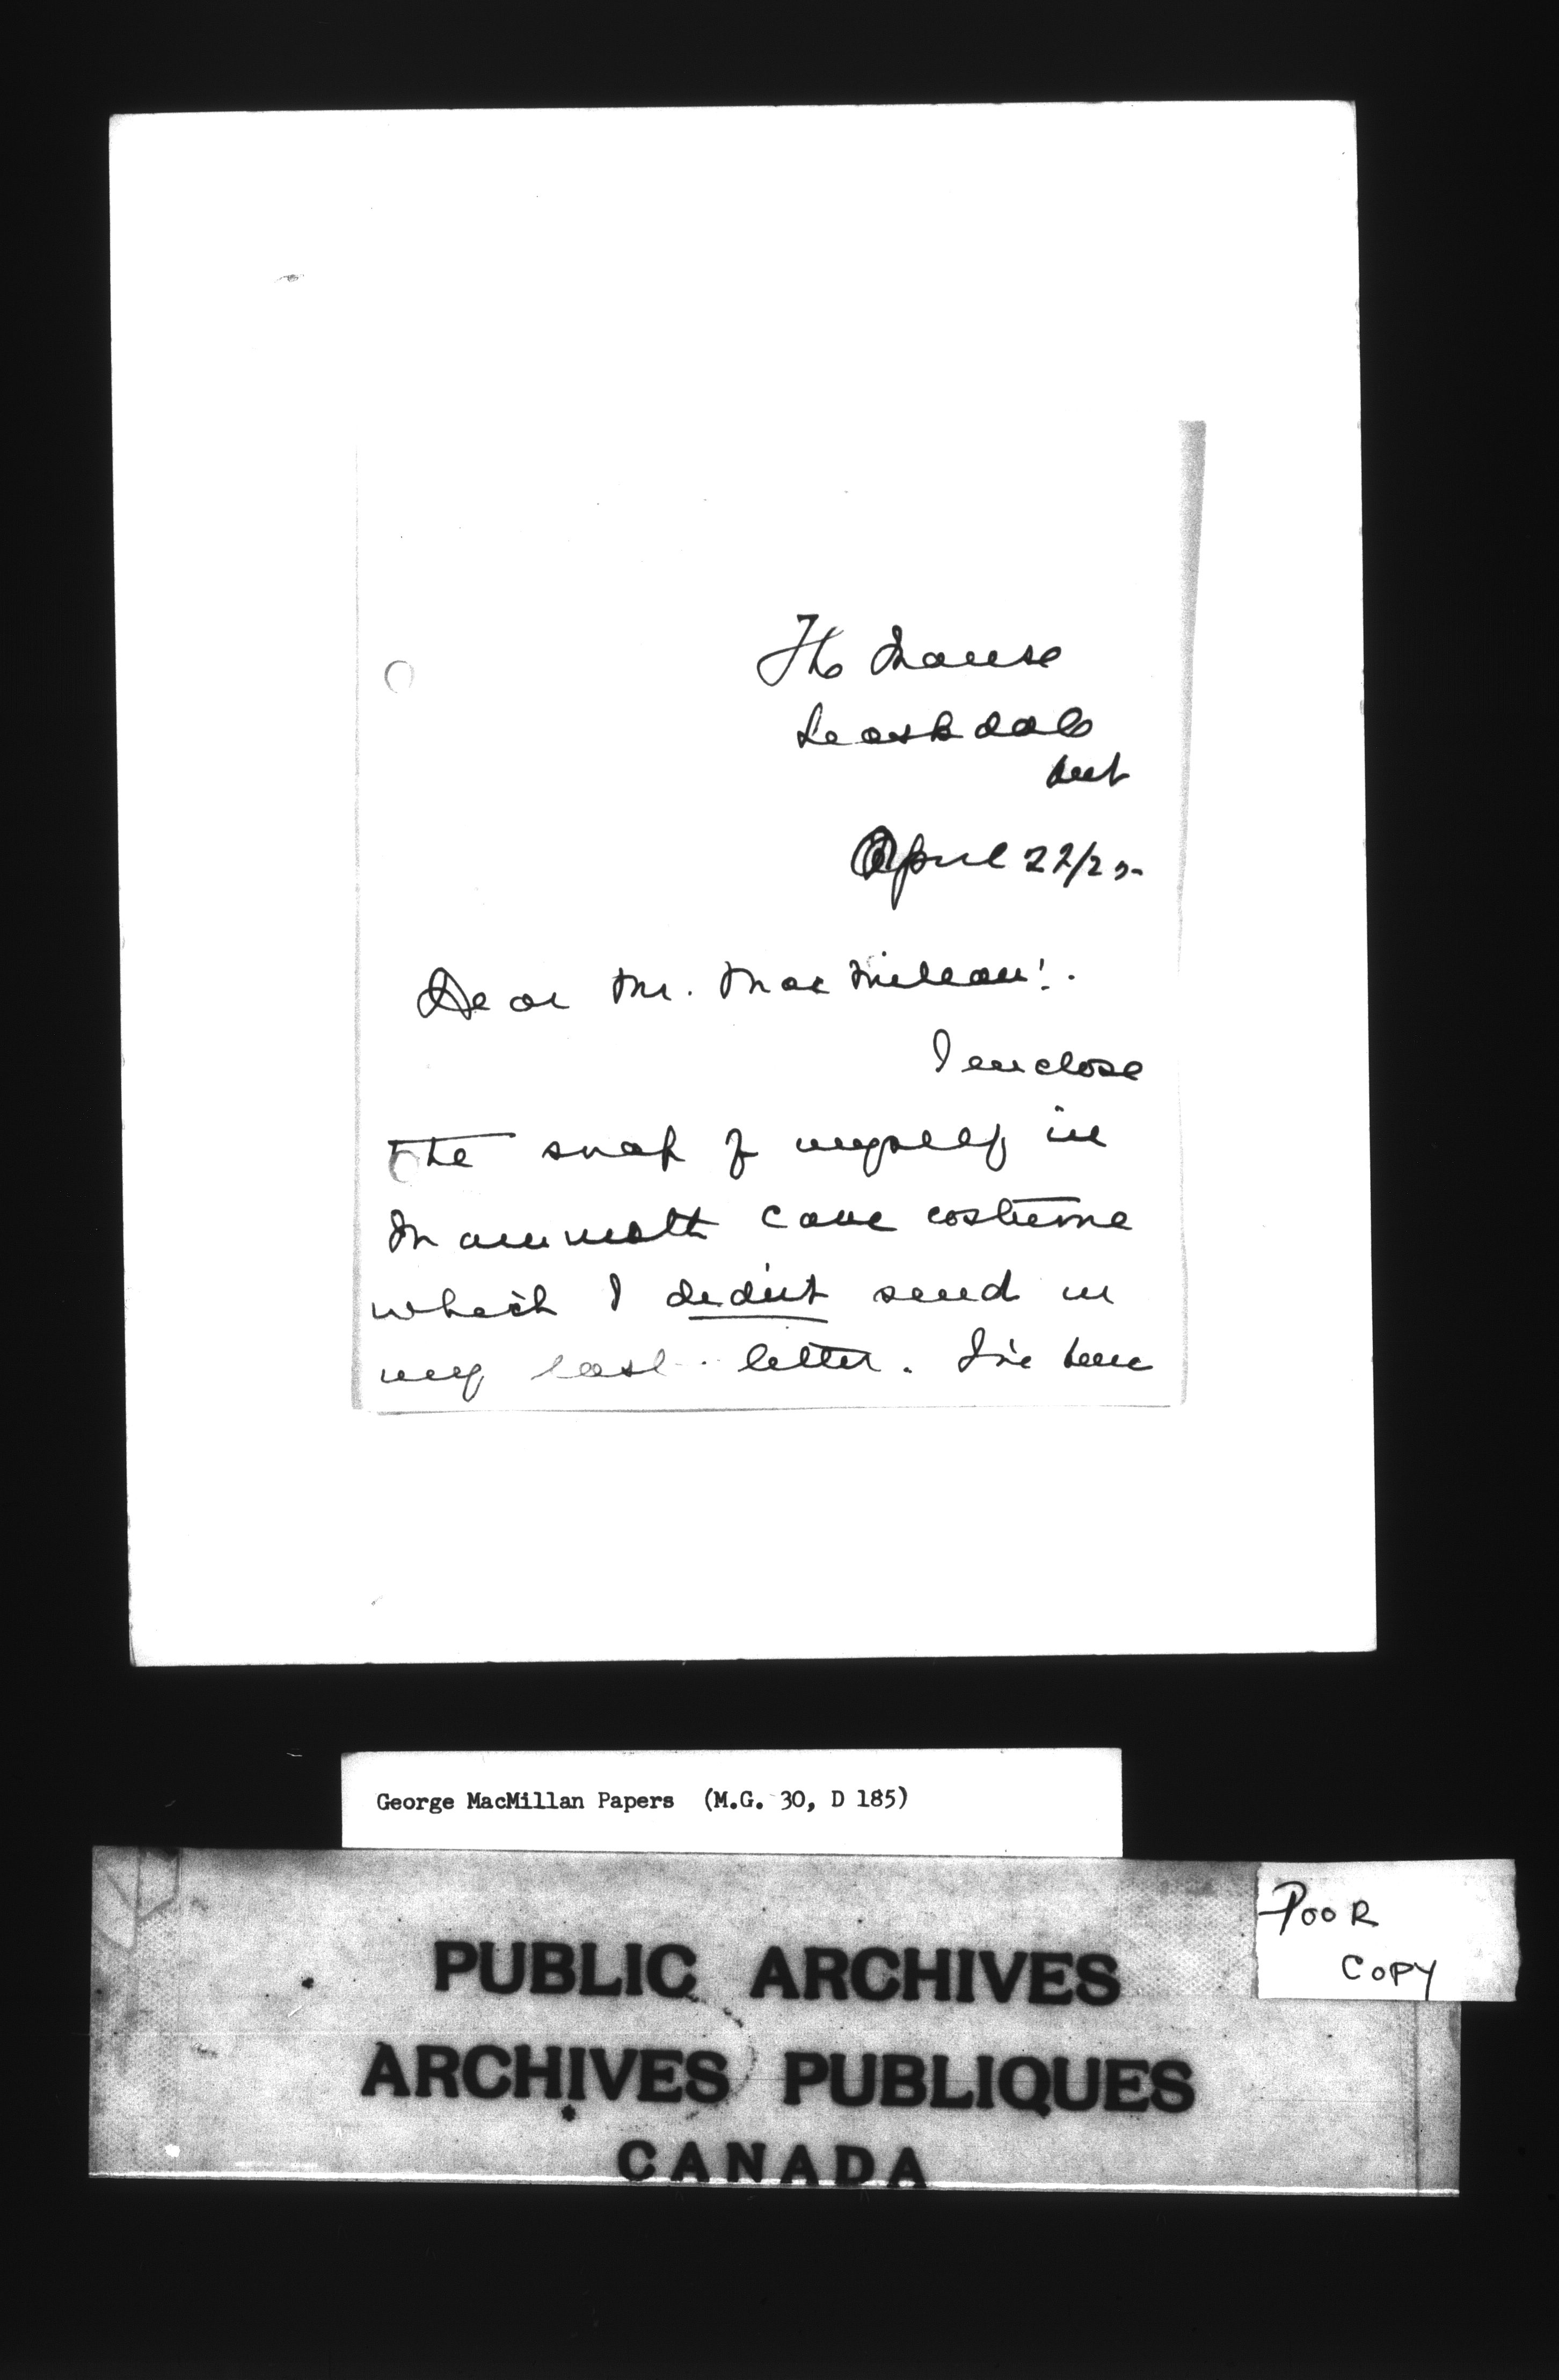 The Manse
Leaskdale
Ont
April 22/25
Dear Mr. MacMillan:.
I enclose
the snap of myself in
Mammoth Cave costume
which I didn't send in
my last letter. I've been
George MacMillan Papers (M.G. 30, D 185)
POOR
COPY
PUBLIC ARCHIVES
ARCHIVES PUBLIQUES
CANADA